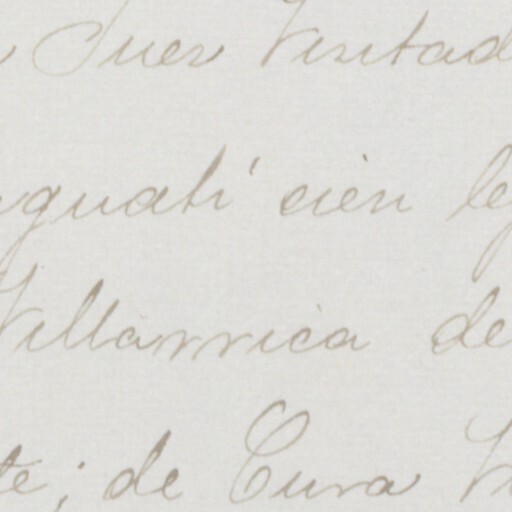 Juez Visitad
guatí cién le
Villarrica de
te; de Cura V